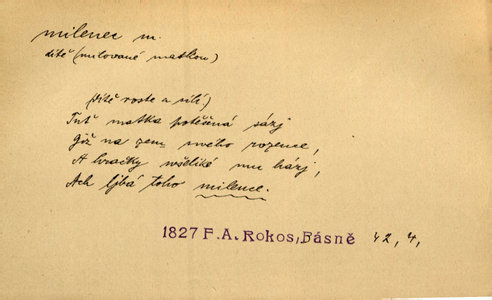 milenec m.
dítě (milované matkou)
(dítě roste a sílí)
Tuť matka potěšená sázj
Giž na zem swého rozence,
A hračky wšeliké mu házj,
Ach ljbá toho milence.
1827 F.A. Rokos, Básně 42, 4,